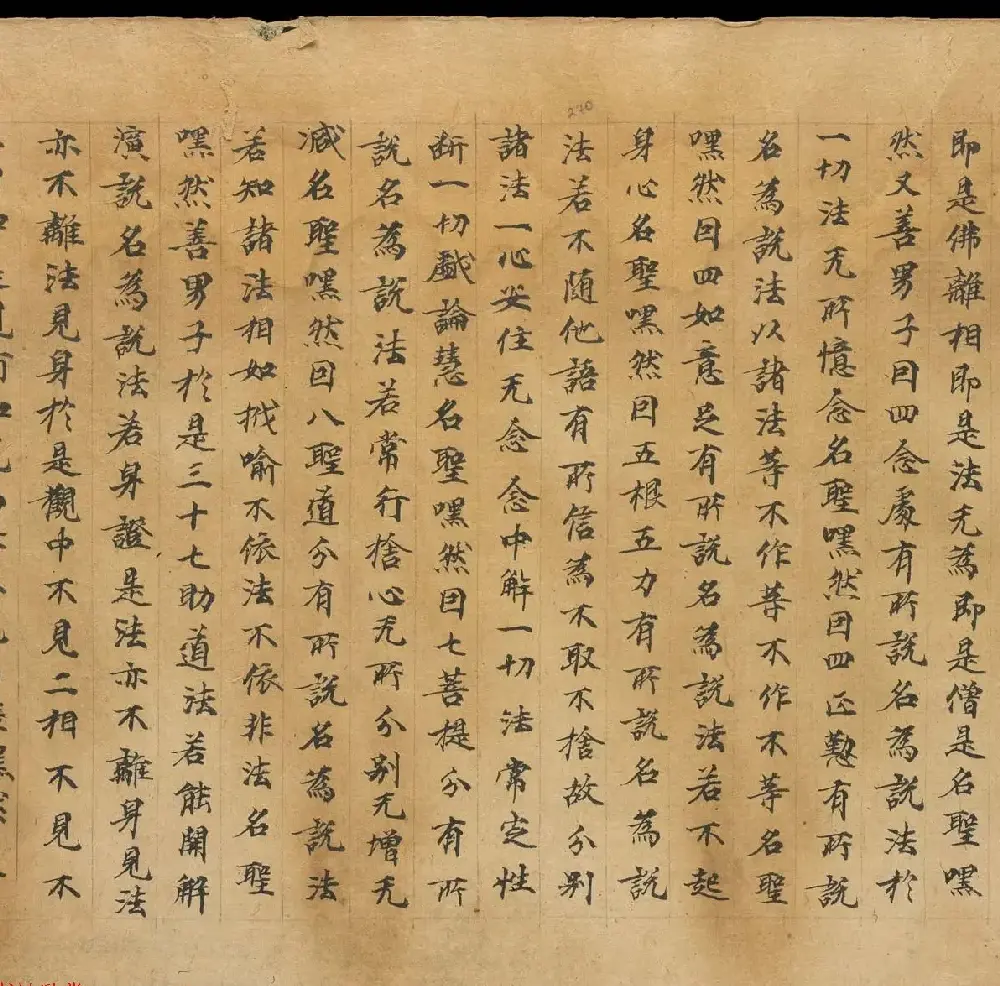 即是佛離相即是法无為即是僧是名聖嘿
然又善男子因四念處有所說名為說法於
一切法无所憶念名聖嘿然因四正懃有所說
名為說法以諸法等不作等不作不等名聖
嘿然因四如意足有所說名為說法若不起
身心名聖嘿然因五根五力有所說名為說
法若不随他語有所信為不取不捨故分别
諸法一心安住无念念中解一切法常定性
断一切戲論慧名聖嘿然因七菩提分有所
說名為說法若常行捨心无所分别无增无
减名聖嘿然因八聖道分有所說名為說法
若知諸法相如栰喻不依法不依非法名聖
嘿然善男子於是三十七助道法若能開解
演說名為說法若身證是法亦不離身見法
亦不離法見身於是觀中不見二相不見不
270